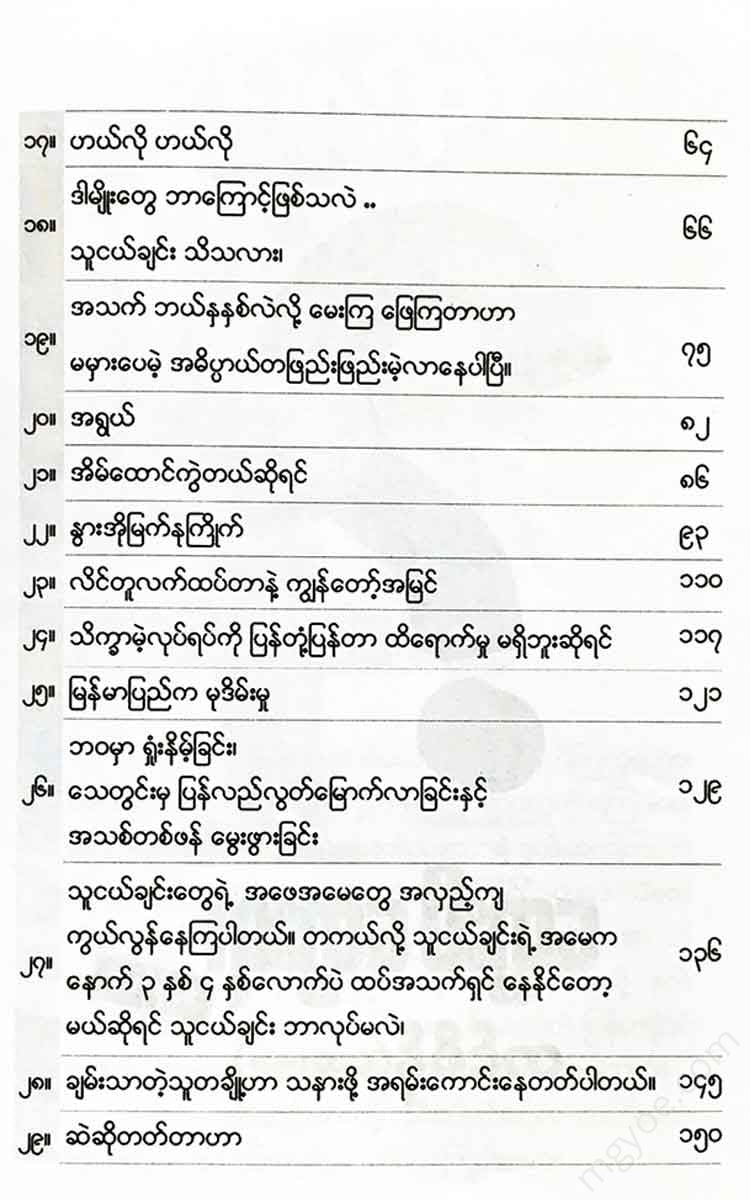 ၁၇။ ဟယ်လို ဟယ်လို ၆၄
ဒါမျိုးတွေ ဘာကြောင့်ဖြစ်သလဲ ..
၁၈။ ၆၆
သူငယ်ချင်း သိသလား၊
အသက် ဘယ်နှနှစ်လဲလို့ မေးကြ ဖြေကြတာဟာ
၁၉။ ၇၅
မမှားပေမဲ့ အဓိပ္ပာယ်တဖြည်းဖြည်းမဲ့လာနေပါပြီ။
၂၀။ အရွယ် ၈၂
၂၁။ အိမ်ထောင်ကွဲတယ်ဆိုရင် ၈၆
၂၂။ နွားအိုမြက်နုကြိုက် ၉၃
၂၃။ လိင်တူလက်ထပ်တာနဲ့ ကျွန်တော့်အမြင် ၁၁၀
၂၄။ သိက္ခာမဲ့လုပ်ရပ်ကို ပြန်တုံ့ပြန်တာ ထိရောက်မှု မရှိဘူးဆိုရင် ၁၁၇
၂၅။ မြန်မာပြည်က မုဒိမ်းမှု ၁၂၁
ဘဝမှာ ရှုံးနိမ့်ခြင်း၊
၂၆။ သေတွင်းမှ ပြန်လည်လွတ်မြောက်လာခြင်းနှင့် ၁၂၉
အသစ်တစ်ဖန် မွေးဖွားခြင်း
သူငယ်ချင်းတွေရဲ့ အဖေအမေတွေ အလှည့်ကျ
ကွယ်လွန်နေကြပါတယ်။ တကယ်လို့ သူငယ်ချင်းရဲ့ အမေက
၂၇။ ၁၃၆
နောက် ၃ နှစ် ၄ နှစ်လောက်ပဲ ထပ်အသက်ရှင် နေနိုင်တော့
မယ်ဆိုရင် သူငယ်ချင်း ဘာလုပ်မလဲ၊
၂၈။ ချမ်းသာတဲ့သူတချို့ဟာ သနားဖို့ အရမ်းကောင်းနေတတ်ပါတယ်။ ၁၄၅
၂၉။ ဆဲဆိုတတ်တာဟာ ၁၅၀
mgyoe.com